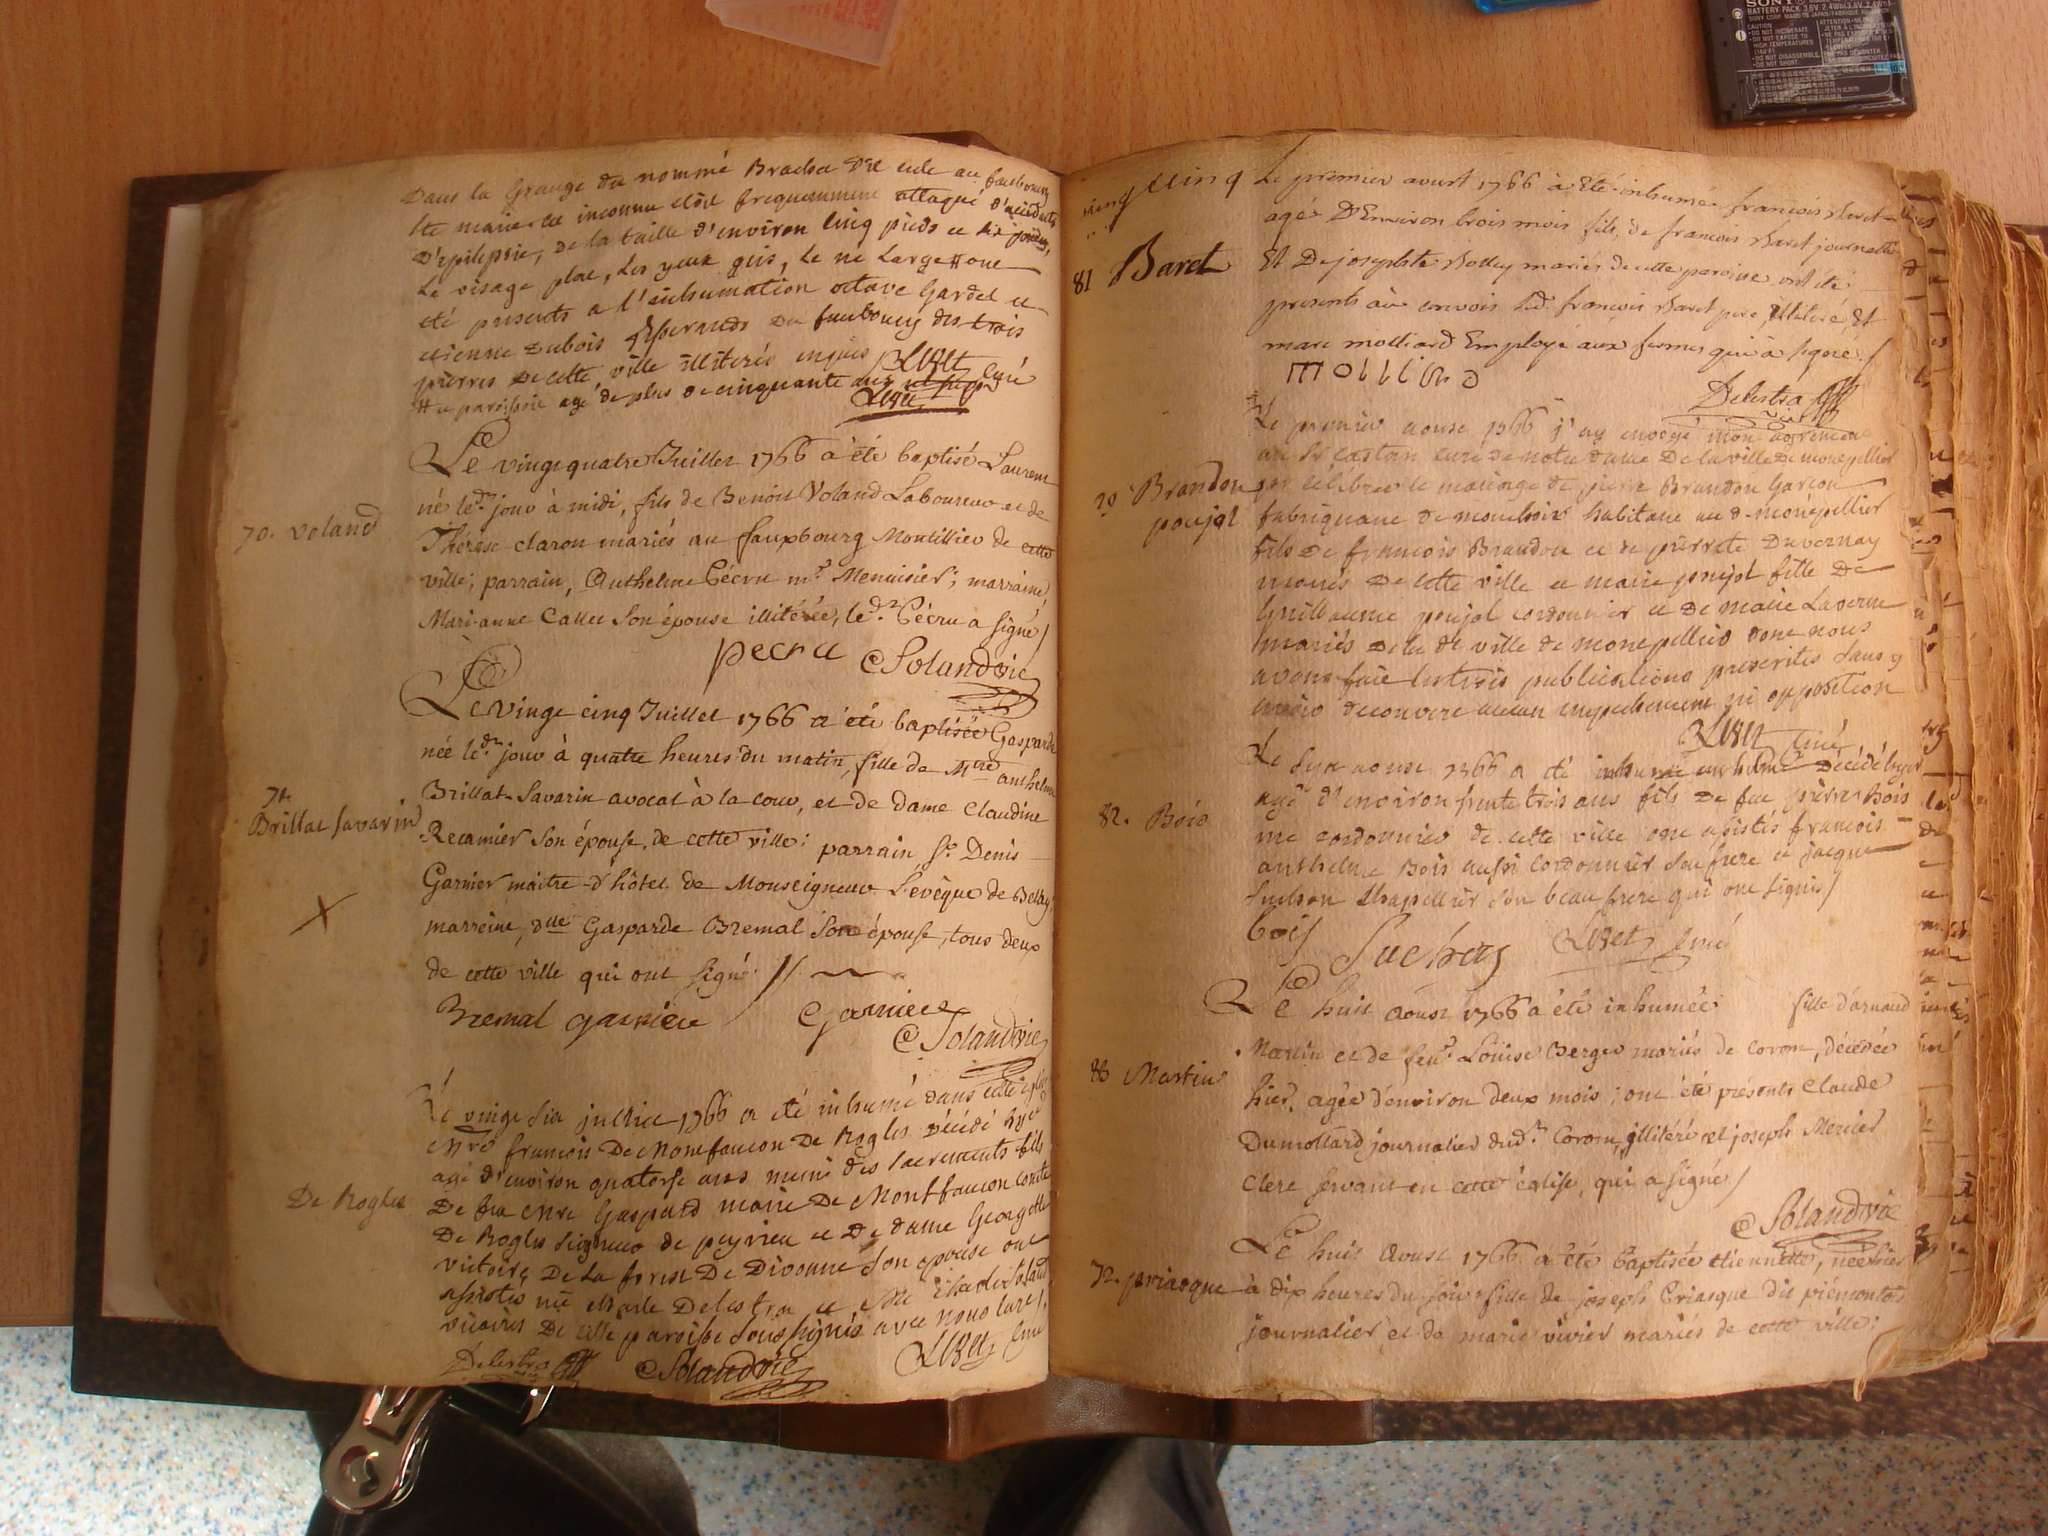 Dans la Grange du nommé
inconnu étoit frequemment attaqué d'accidents
D'epilepsie, de la taille d'environ cinq pieds
Le visage plat, Les yeux gris, Le né Large
eté presents a l'inhumation octave Gardet et
etienne Dubois du faubourg des trois
pierres de cette ville illiterés enquis curé
age de plus de cinquante ans
Le vingt quatre Juillet 1766 a été baptisé Laurent
né led.t jour à midi, fils de Benoit Voland Laboureur et de
70. Voland
Thérese claron mariés au fauxbourg Montillier de cette
ville; parrain, Anthelme Pécru m.e Menuisier; marraine,
Mari-anne Callet Son épouse illitérée, led.t Pécru a signé /
pecru Solandvic
Le vingt cinq Juillet 1766 a été baptisée Gasparde
née led.t jour à quatre heures du matin, fille de M.tre anthelme
71.
Brillat Savarin
Brillat-Savarin avocat à la cour, et de dame Claudine
Recamier son épouse, de cette ville; parrain S.r Denis
Garnier maitre-d'hôtel de Monseigneur L'evêque de Belley
marreine, dlle Gasparde Bremal Son épouse, tous deux
de cette ville qui ont signé. //
Bremal garniere Garnier
Solandvic
Le vingt six juillet 1766 a été inhumé dans cette eglise
Mre francois De Montfaucon De Rogles décédé hyer
agé d'environ quatorse ans muni des sacrements fils
De Rogles
De feu Mre Gaspard marie De Montfaucon comte
De Rogles Seigneur de peyrieu et De dame Georgette
victoire De La forest De Divonne Son epouse ont
assistés Delestra et Solandvic
vicaires De cette paroisse Soussignés avec nous curé /.
Delestra Solandvic curé
cinq Le premier aoust 1766 à Eté inhumé francois Baret
agés D'Environ trois mois fils de francois Baret journalie
81 Baret
Et De josephte Bolley mariés de cette paroisse ont été
presents au convois led. francois Baret pere illiteré, Et
marc molliard Employé aux fermes qui à signé. /
molliard
Delestra vic
Le premier aoust 1766 j'ay envoyé mon agrement
au Sr castan curé de notre dame De la ville de montpellier
20 Brandon
poujol
por celebrer le mariage de pierre Brandon Garcon
fabriquant de mouchoir habitant au d. montpellier
fils De francois Brandon et de pierrete Duvernay
mariés De cette ville et marie poujol fille De
Guillaume poujol cordonnier et De marie Laverne
mariés De la de ville de montpellier dont nous
avons fait les trois publications prescrites sans y
avoir decouvert aucun empechement ni opposition
curé
Le Six aoust 1766 a été inhumé anthelme décédé hyer
agé d'environ trente trois ans fils De feu pierre Bois
82. Bois
me cordonnier de cette ville ont assistés francois
anthelme Bois aussi cordonnier son frere et jacque
Suchon Chapellier son beau frere qui ont signés /
bois Suchon curé
Le huit Aoust 1766 a été inhumée fille d'arnaud
83 Martin
Martin et de feu.e Louise Berger mariés de Coron, décédée
hier, agée d'environ deux mois; ont été présents Claude
Dumollard journalier dud.t Coron, illitéré et joseph Mercier
clerc servant en cette église, qui a signé /
Solandvic
Le huit Aoust 1766 a été baptisée etiennette, née hier
72. priasque
à dix heures du soir fille de joseph Priasque dit piémontois
journalier, et de marie vivier mariés de cette ville;
SONY
BATTERY PACK 3,6V 2,4Wh
CAUTION